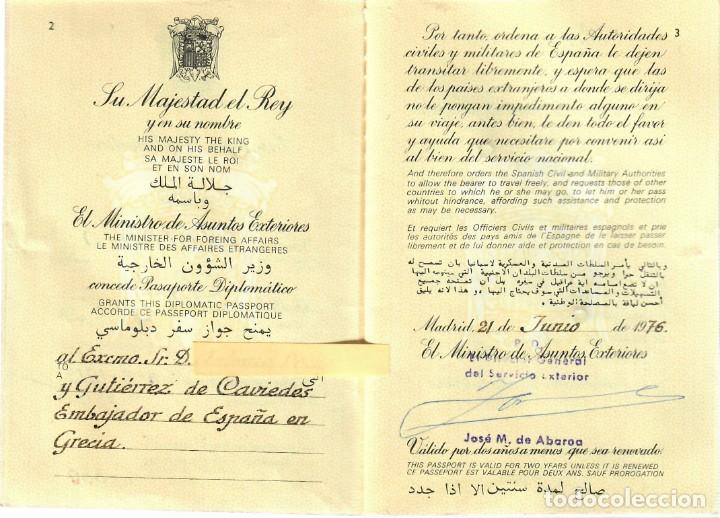 2
Su Majestad el Rey
y en su nombre
HIS MAJESTY THE KING
AND ON HIS BEHALF
SA MAJESTE LE ROI
ET EN SON NOM
جلالة الملك
وباسمه
El Ministro de Asuntos Exteriores
THE MINISTER FOR FOREING AFFAIRS
LE MINISTRE DES AFFAIRES ETRANGERES
وزير الشؤون الخارجية
concede Pasaporte Diplomático
GRANTS THIS DIPLOMATIC PASSPORT
ACCORDE CE PASSEPORT DIPLOMATIQUE
يمنح جواز سفر دبلوماسي
al Excmo. Sr. D.
TO
A
الى
y Gutiérrez de Caviedes
Embajador de España en
Grecia.
3
Por tanto, ordena a las Autoridades
civiles y militares de España le dejen
transitar libremente, y espera que las
de los países extranjeros a donde se dirija
no le pongan impedimento alguno en
su viaje, antes bien, le den todo el favor
y ayuda que necesitare por convenir asi
al bien del servicio nacional.
And therefore orders the Spanish Civil and Military Authorities
to allow the bearer to travel freely, and requests those of other
countries to which he or she may go, to let him or her pass
whitout hindrance, affording such assistance and protection
as may be necessary.
Et requiert les Officiers Civils et militaires espagnols et prie
les autorités des pays amis de l'Espagne de le laisser passer
librement et de lui donner aide et protection en cas de besoin.
وبالتالي يأمر السلطات المدنية والعسكرية لاسبانيا بان تسمح له
بالتنقل حرا ويرجو من سلطات البلدان الاجنبية التي يتوجه اليها
ان لا تضع امامه اية عراقيل في سفره بل ان تمنحه جميع
التسهيلات والمساعدات التي سوف يحتاج اليها
Madrid, 21 de Junio de 1976.
P. D.
El Ministro de Asuntos Exteriores
El Director General
del Servicio Exterior
José M. de Abaroa
Válido por dos años a menos que sea renovado.
THIS PASSPORT IS VALID FOR TWO YEARS UNLESS IT IS RENEWED
CE PASSEPORT EST VALABLE POUR DEUX ANS. SAUF PROROGATION
صالح لمدة سنتين الا اذا جدد
todocoleccion